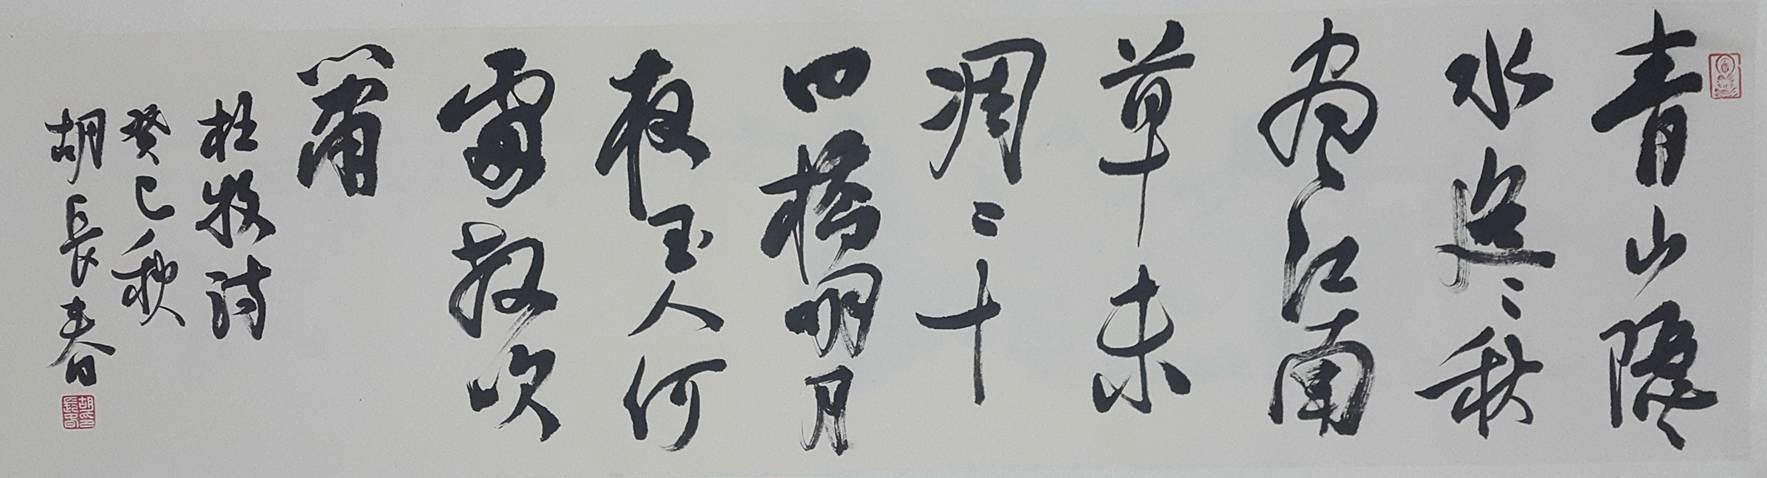 青山隱〻
水迢〻秋
盡江南
草未
凋二十
四橋明月
夜玉人何
處教吹
簫
杜牧詩
癸巳秋
胡長春